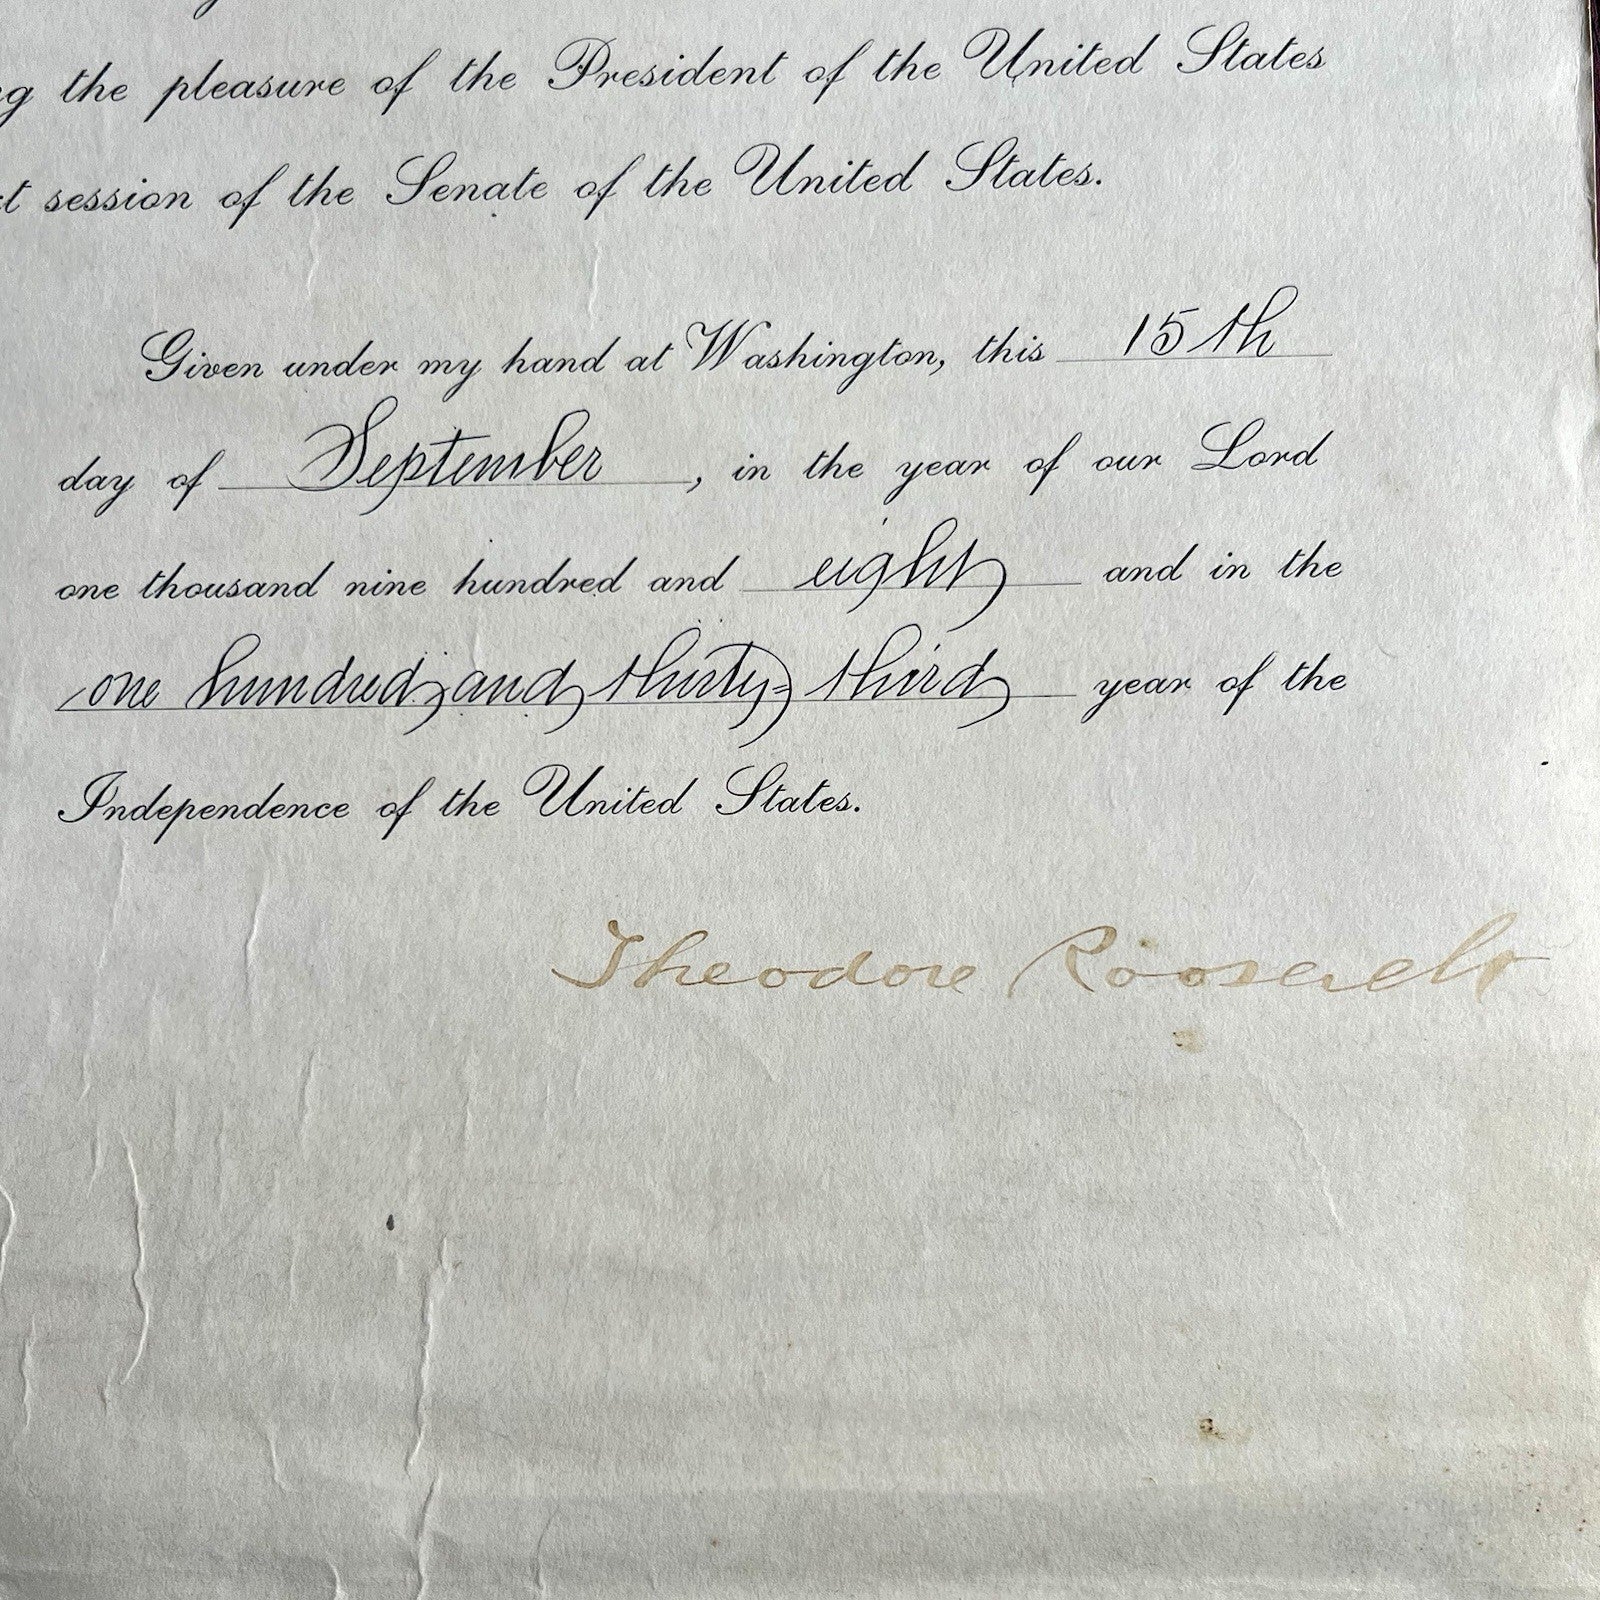 the pleasure of the President of the United States
session of the Senate of the United States.
Given under my hand at Washington, this 15th
day of September, in the year of our Lord
one thousand nine hundred and eight and in the
one hundred and thirty-third year of the
Independence of the United States.
Theodore Roosevelt